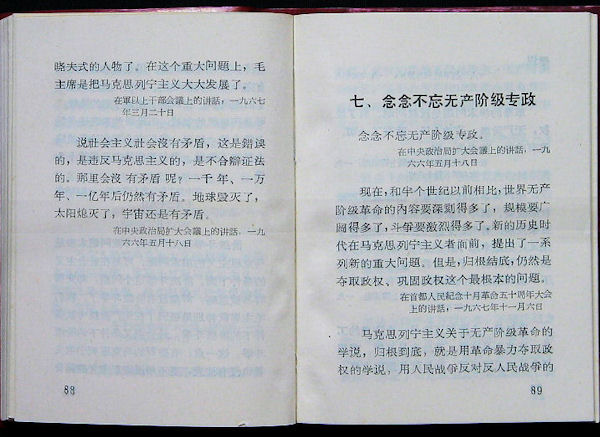 晓夫式的人物了。在这个重大问题上，毛
主席是把马克思列宁主义大大发展了。
在軍以上干部会議上的讲話，一九六七
年三月二十日
说社会主义社会沒有矛盾，这是錯誤
的，是违反马克思主义的，是不合辯証法
的。那里会沒有矛盾呢？一千年、一万
年、一亿年后仍然有矛盾。地球毁灭了，
太阳熄灭了，宇宙还是有矛盾。
在中央政治局扩大会議上的讲話，一九
六六年五月十八日
88
七、念念不忘无产阶级专政
念念不忘无产阶级专政。
在中央政治局扩大会議上的讲話，一九
六六年五月十八日
现在，和半个世纪以前相比，世界无产
阶级革命的內容要深刻得多了，规模要广
闊得多了，斗爭要激烈得多了。新的历史时
代在马克思列宁主义者面前，提出了一系
列新的重大问题。但是，归根结底，仍然是
夺取政权、巩固政权这个最根本的问题。
在首都人民紀念十月革命五十周年大会
上的讲話，一九六七年十一月六日
马克思列宁主义关于无产阶级革命的
学说，归根到底，就是用革命暴力夺取政
权的学说，用人民战爭反对反人民战爭的
89